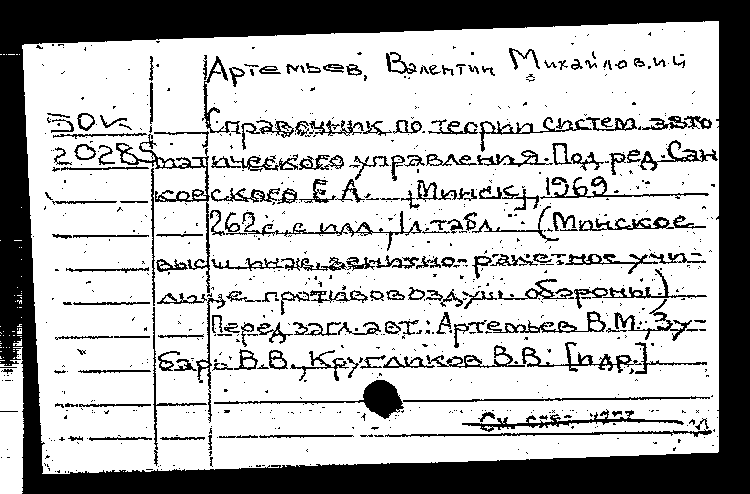 Артемьев, Валентин Михайлович
30к Справочник по теории систем авто-
20285 матического управления. Под ред. Сан-
ковского Е.А. [Минск], 1969.
262 с. с илл., 1 л. табл. (Минское
высш инж. зенитно-ракетное учи-
лище противовоздуш. обороны)
Перед загл. авт.: Артемьев В.М., Зу-
барь В.В., Кругликов В.В. [и др.].
См.